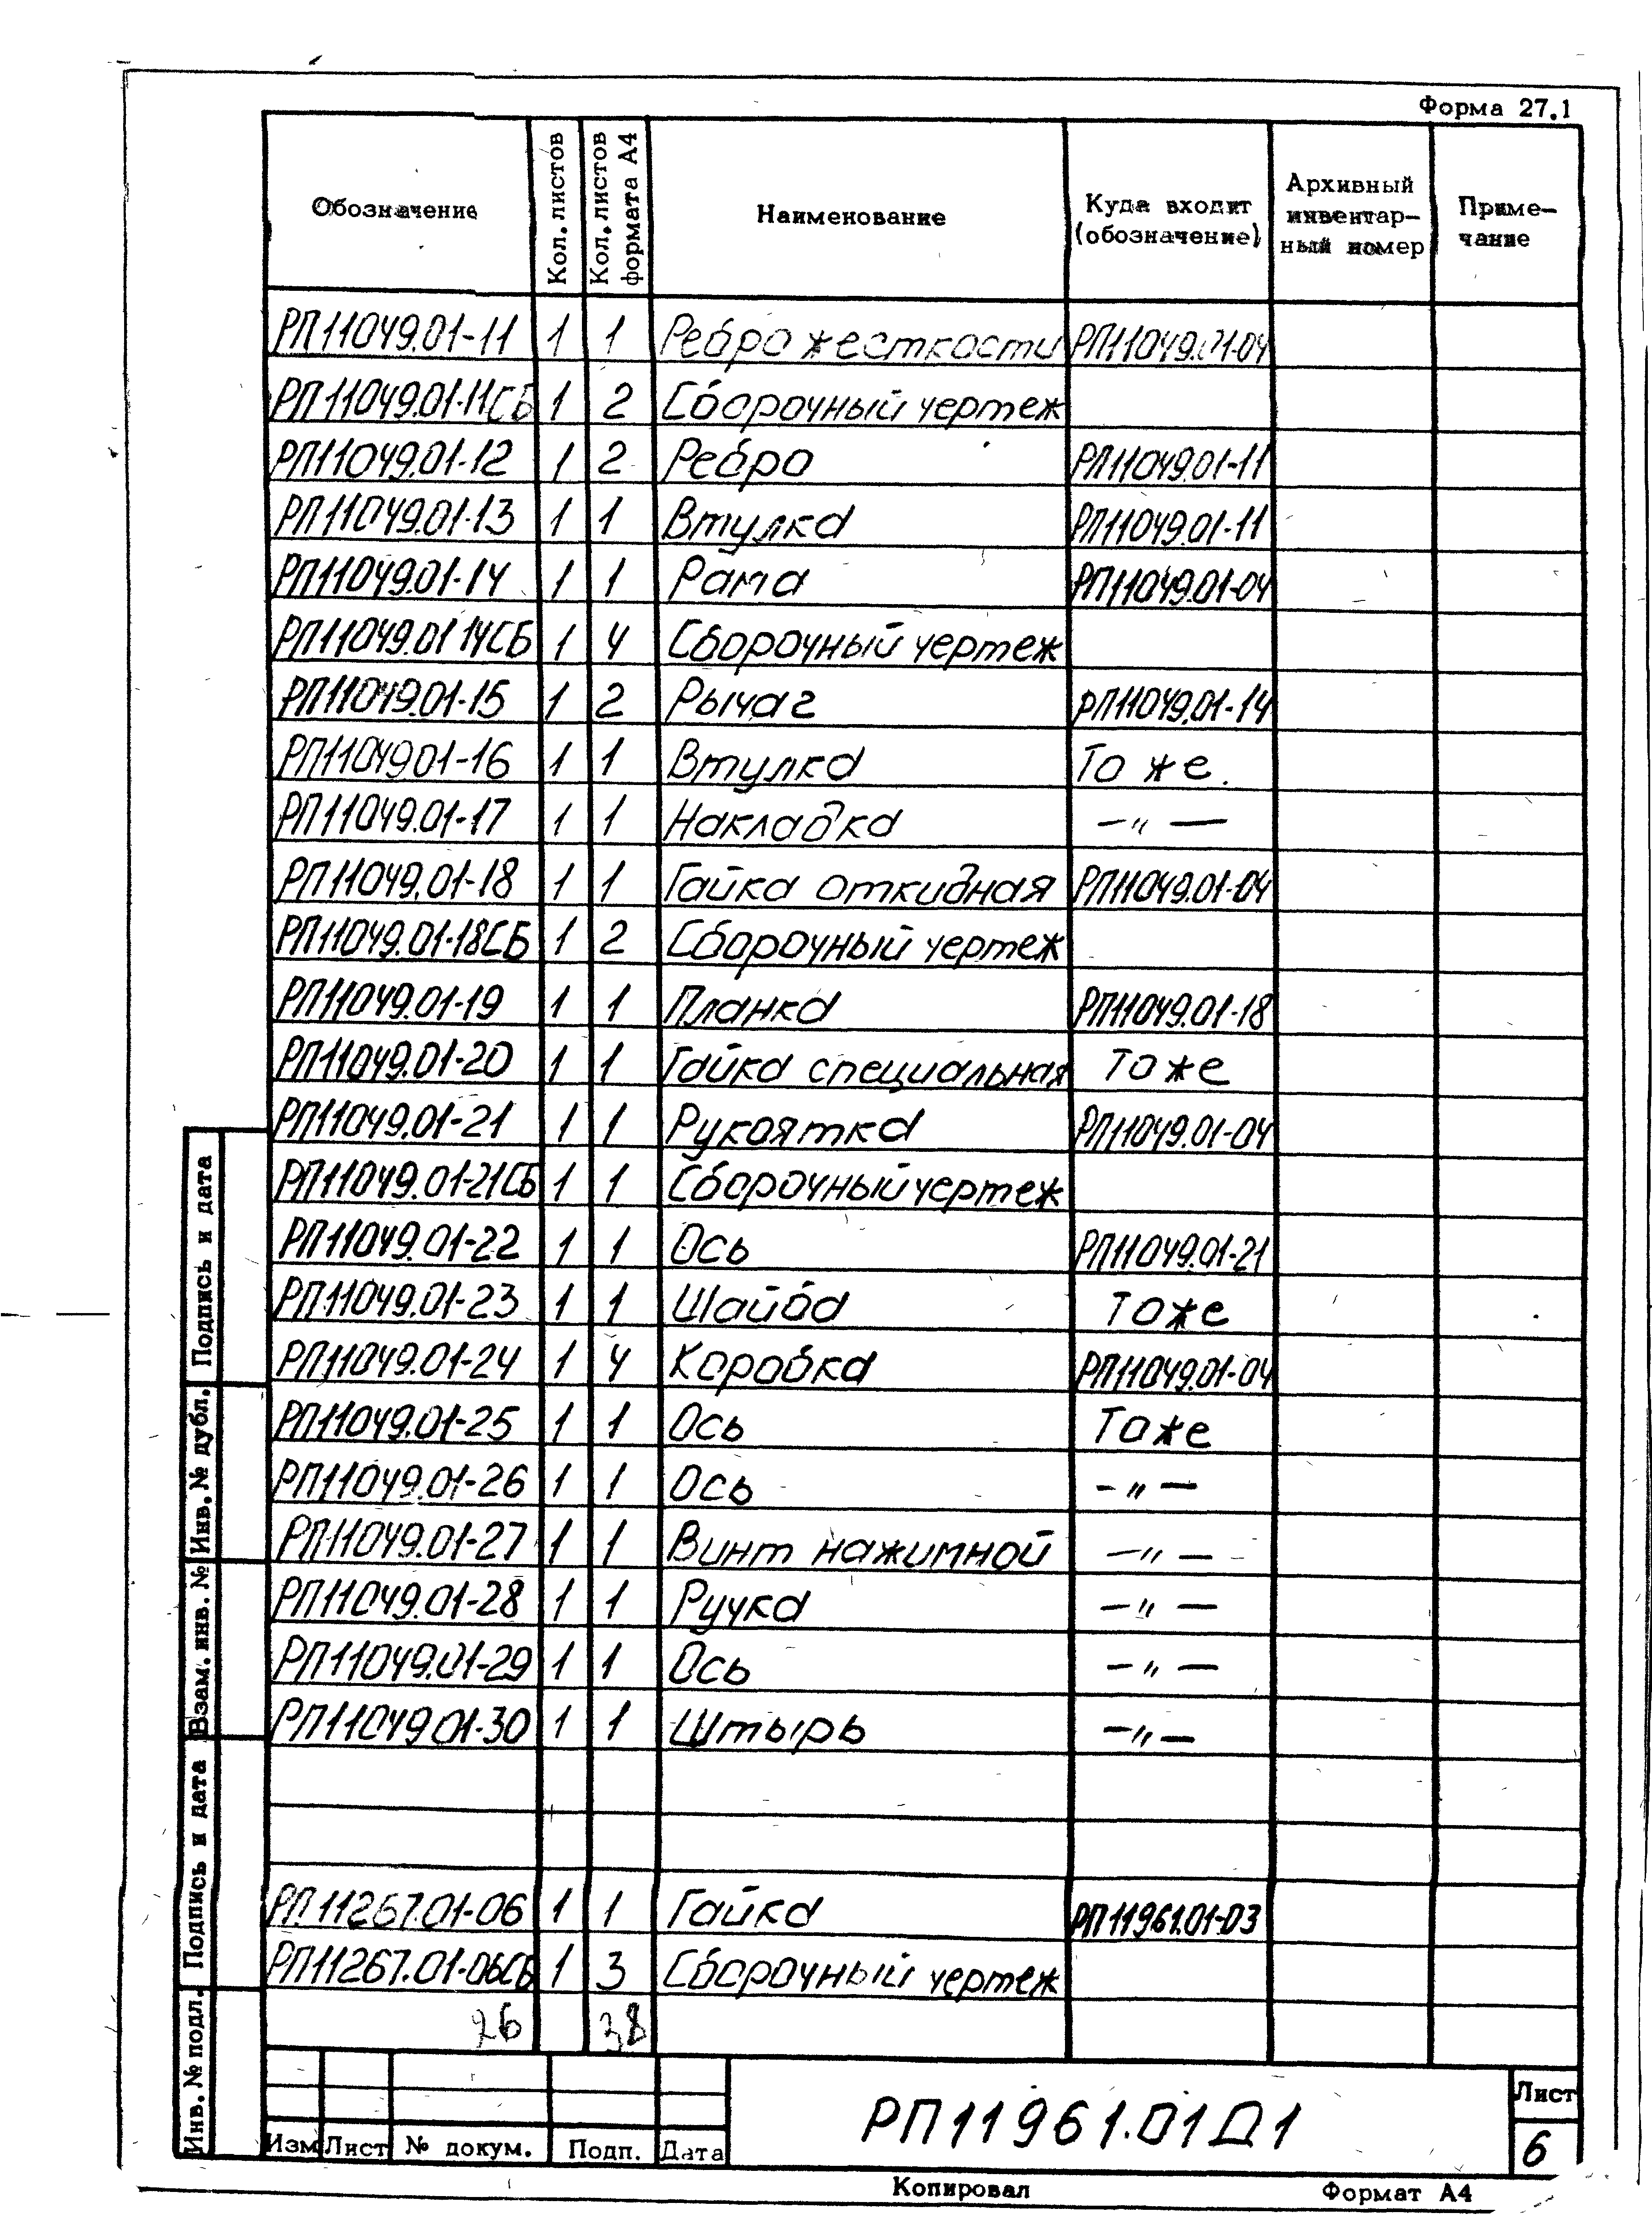 Форма 27.1
Обозначение Кол. листов Кол. листов формата А4 Наименование Куда входит (обозначение) Архивный инвентар-ный номер Приме-чание
РП11049.01-11 1 1 Ребро жесткости РП11049.01-04
РП11049.01-11СБ 1 2 Сборочный чертеж
РП11049.01-12 1 2 Ребро РП11049.01-11
РП11049.01-13 1 1 Втулка РП11049.01-11
РП11049.01-14 1 1 Рама РП11049.01-04
РП11049.01 14СБ 1 4 Сборочный чертеж
РП11049.01-15 1 2 Рычаг РП11049.01-14
РП1104901-16 1 1 Втулка То же.
РП11049.01-17 1 1 Накладка —〃—
РП11049.01-18 1 1 Гайка откидная РП11049.01-04
РП11049.01-18СБ 1 2 Сборочный чертеж
РП11049.01-19 1 1 Планка РП11049.01-18
РП11049.01-20 1 1 Гайка специальная То же
РП11049.01-21 1 1 Рукоятка РП11049.01-04
РП11049.01-21СБ 1 1 Сборочный чертеж
РП11049.01-22 1 1 Ось РП11049.01-21
РП11049.01-23 1 1 Шайба То же
РП11049.01-24 1 4 Коробка РП11049.01-04
РП11049.01-25 1 1 Ось То же
РП11049.01-26 1 1 Ось —〃—
РП11049.01-27 1 1 Винт нажимной —〃—
РП11049.01-28 1 1 Ручка —〃—
РП11049.01-29 1 1 Ось —〃—
РП11049.01-30 1 1 Штырь —〃—
РП.11267.01-06 1 1 Гайка РП11961.01-03
РП11267.01-06СБ 1 3 Сборочный чертеж
26 38
Подпись и дата
Инв. № дубл.
Взам. инв. №
Подпись и дата
Инв. № подл.
Изм Лист № докум. Подп. Дата
РП11961.01Д1
Лист
6
Копировал Формат А4